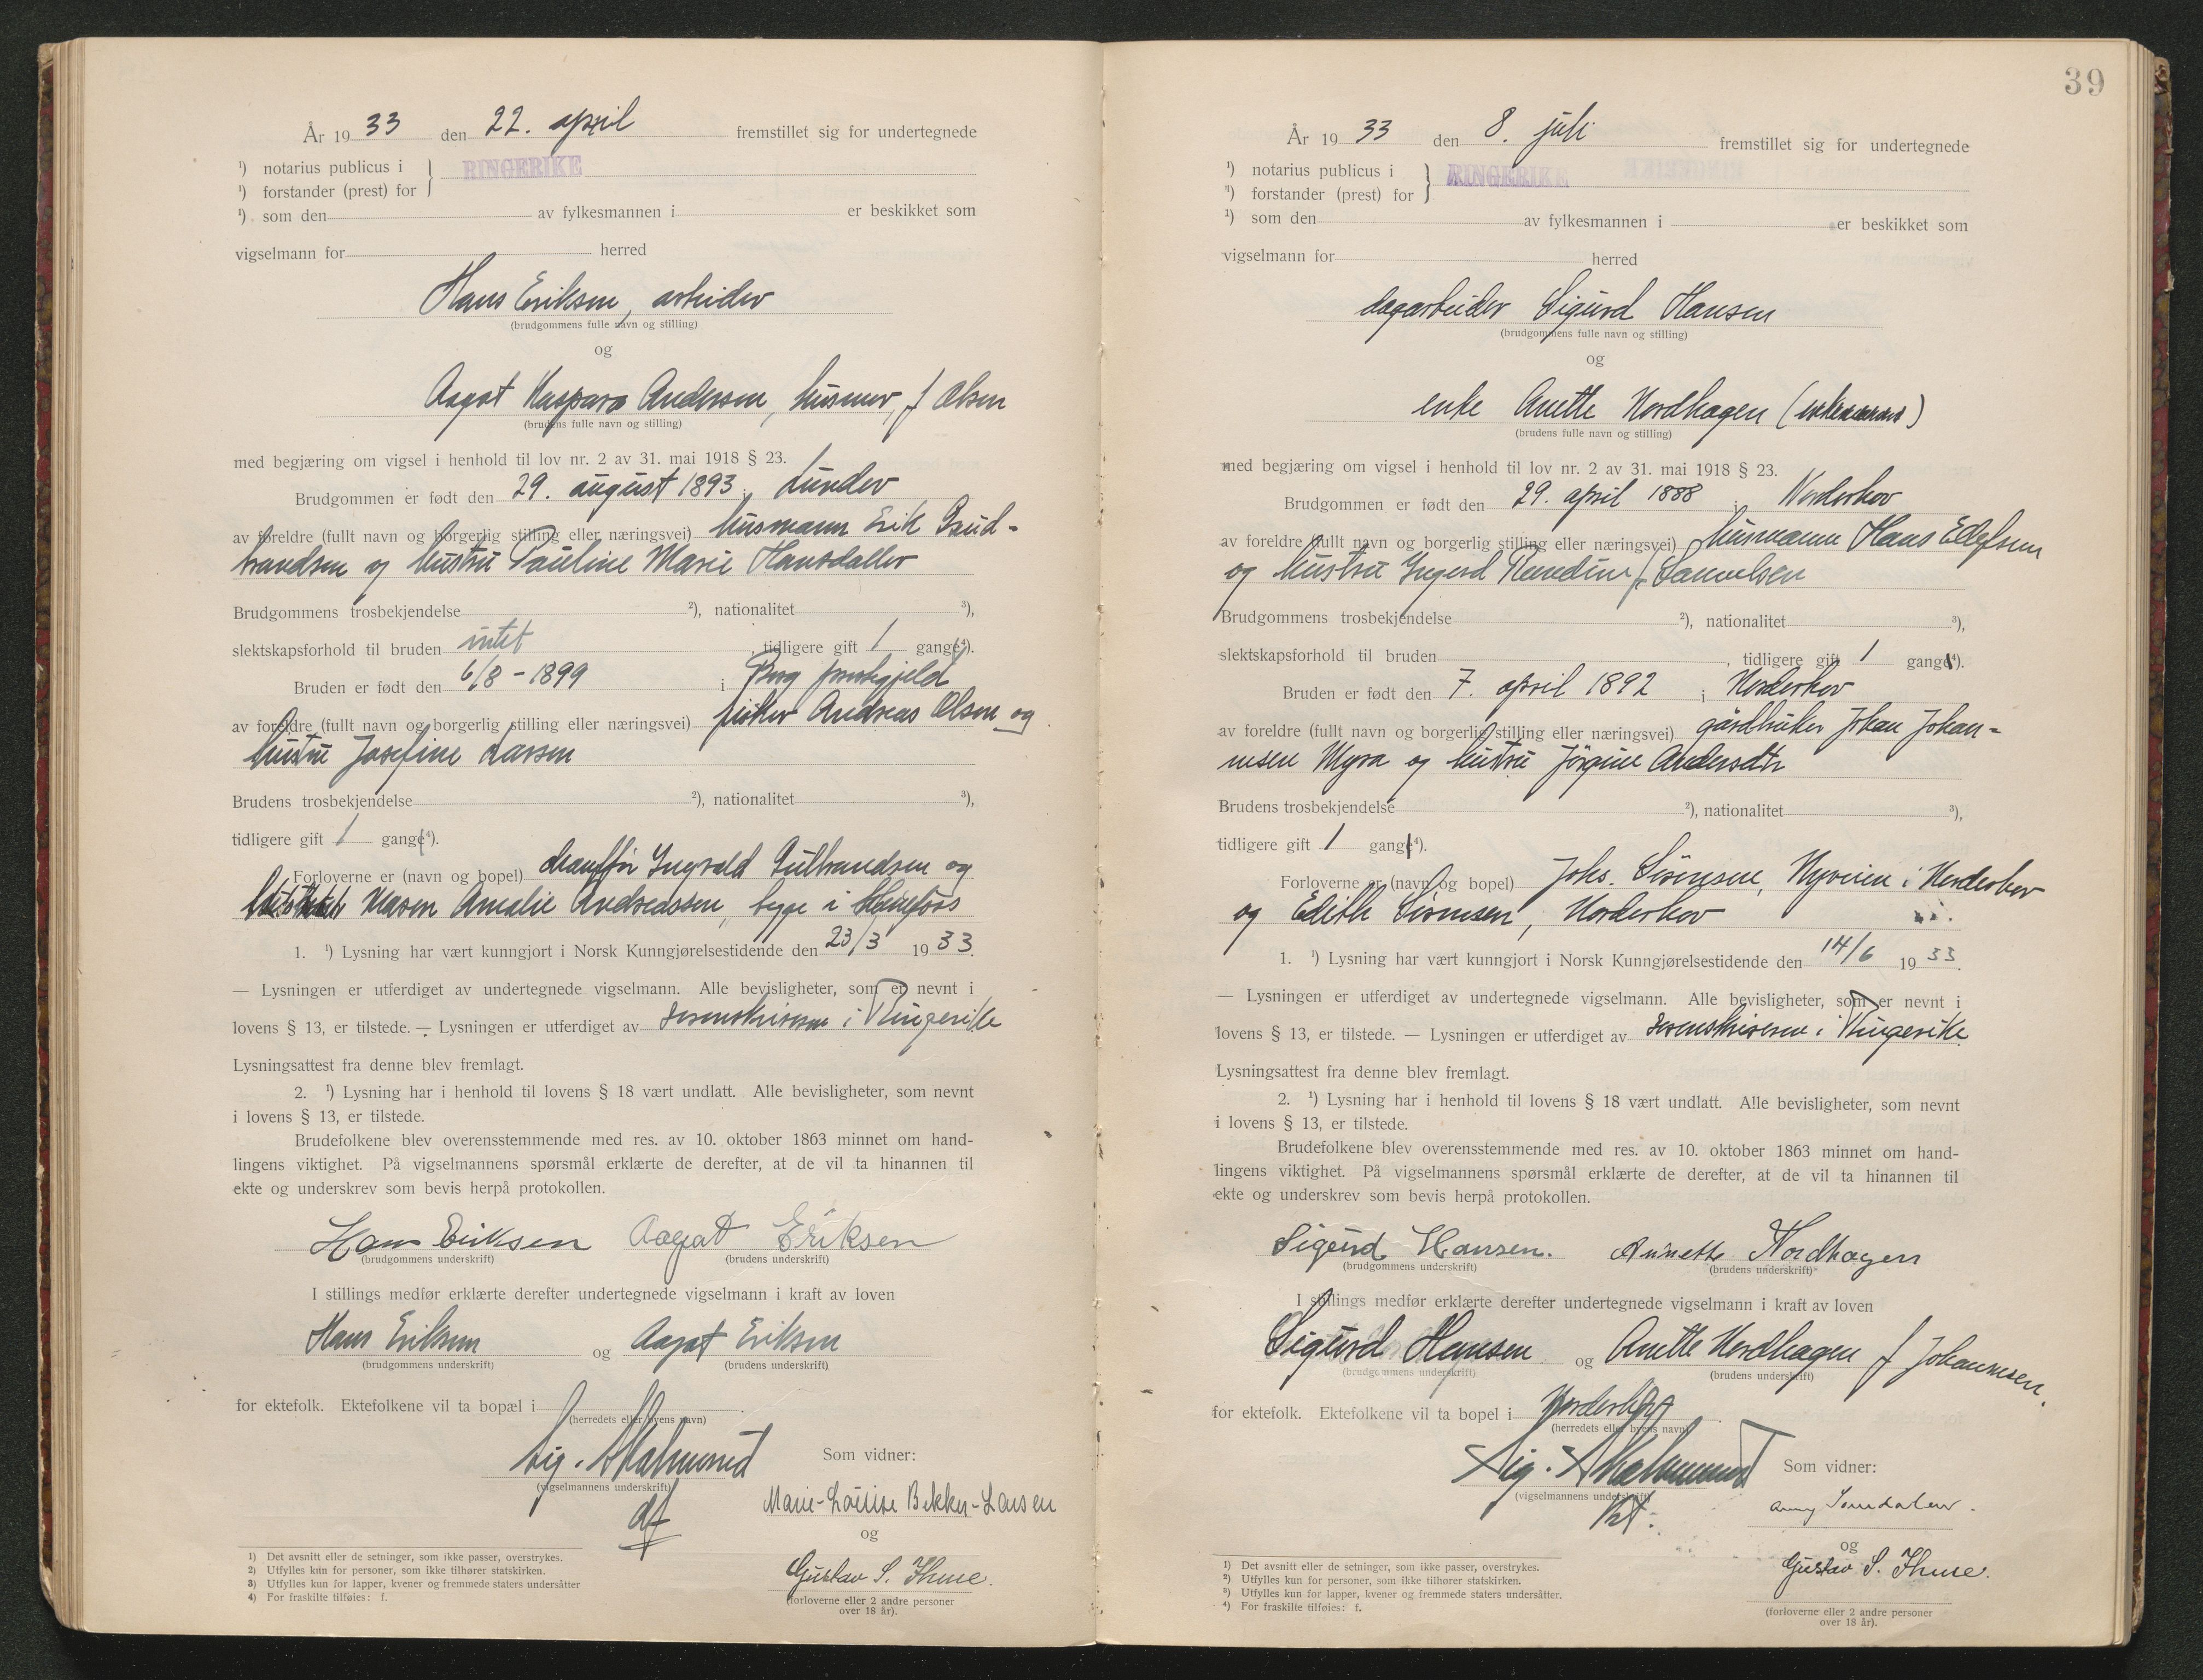 År 1933 den 22. april fremstillet sig for undertegnede
¹) notarius publicus i
¹) forstander (prest) for
} RINGERIKE
¹) som den av fylkesmannen i er beskikket som
vigselmann for herred
Hans Eriksen, arbeider
(brudgommens fulle navn og stilling)
og
Aagot Kaspara Andersen, husmor, f Olsen
(brudens fulle navn og stilling)
med begjæring om vigsel i henhold til lov nr. 2 av 31. mai 1918 § 23.
Brudgommen er født den 29. august 1893 i Lunder
av foreldre (fullt navn og borgerlig stilling eller næringsvei) husmann Erik Gud-
brandsen og hustru Pauline Marie Hansdatter
Brudgommens trosbekjendelse ²), nationalitet ³),
slektskapsforhold til bruden intet, tidligere gift 1 gang⁴).
Bruden er født den 6/8 - 1899 i Borg prestegjeld
av foreldre (fullt navn og borgerlig stilling eller næringsvei) fisker Andreas Olsen og
hustru Josefine Larsen
Brudens trosbekjendelse ²), nationalitet ³),
tidligere gift 1 gang⁴).
Forloverne er (navn og bopel) Ingvald Gulbrandsen og
Maren Amalie Andreassen, begge i Hønefoss
1. ¹) Lysning har vært kunngjort i Norsk Kunngjørelsestidende den 23/3 1933.
— Lysningen er utferdiget av undertegnede vigselmann. Alle bevisligheter, som er nevnt i
lovens § 13, er tilstede. — Lysningen er utferdiget av sorenskriveren i Ringerike
Lysningsattest fra denne blev fremlagt.
2. ¹) Lysning har i henhold til lovens § 18 vært undlatt. Alle bevisligheter, som nevnt
i lovens § 13, er tilstede.
Brudefolkene blev overensstemmende med res. av 10. oktober 1863 minnet om hand-
lingens viktighet. På vigselmannens spørsmål erklærte de derefter, at de vil ta hinannen til
ekte og underskrev som bevis herpå protokollen.
Hans Eriksen Aagot Eriksen
(brudgommens underskrift) (brudens underskrift)
I stillings medfør erklærte derefter undertegnede vigselmann i kraft av loven
Hans Eriksen og Aagot Eriksen
(brudgommens underskrift) (brudens underskrift)
for ektefolk. Ektefolkene vil ta bopæl i
(herredets eller byens navn)
Sig. Som vidner:
(vigselmannens underskrift)
Marie-Louise Bekker-Larsen
og
Gustav S. Thue.
(forloverne eller 2 andre personer
over 18 år).
1) Det avsnitt eller de setninger, som ikke passer, overstrykes.
2) Utfylles kun for personer, som ikke tilhører statskirken.
3) Utfylles kun for lapper, kvener og fremmede staters undersåtter
4) For fraskilte tilføies: f.
39
År 1933 den 8. juli fremstillet sig for undertegnede
¹) notarius publicus i
¹) forstander (prest) for
} RINGERIKE
¹) som den av fylkesmannen i er beskikket som
vigselmann for herred
Sigurd Hansen
(brudgommens fulle navn og stilling)
og
enke Anette Nordhagen
(brudens fulle navn og stilling)
med begjæring om vigsel i henhold til lov nr. 2 av 31. mai 1918 § 23.
Brudgommen er født den 29. april 1888 i Norderhov
av foreldre (fullt navn og borgerlig stilling eller næringsvei) husmann Hans Ellefsen
og hustru Ingerd Randine f. Samuelsen
Brudgommens trosbekjendelse ²), nationalitet ³),
slektskapsforhold til bruden, tidligere gift 1 gang⁴).
Bruden er født den 7. april 1892 i Norderhov
av foreldre (fullt navn og borgerlig stilling eller næringsvei) gårdbruker Johan Johan-
nesen Myra og hustru Jørgine Andersdtr
Brudens trosbekjendelse ²), nationalitet ³),
tidligere gift 1 gang⁴).
Forloverne er (navn og bopel) Johs. Sørensen, Nyveien i Norderhov
og Edith Sørensen, Norderhov
1. ¹) Lysning har vært kunngjort i Norsk Kunngjørelsestidende den 14/6 1933.
— Lysningen er utferdiget av undertegnede vigselmann. Alle bevisligheter, som er nevnt i
lovens § 13, er tilstede. — Lysningen er utferdiget av sorenskriveren i Ringerike
Lysningsattest fra denne blev fremlagt.
2. ¹) Lysning har i henhold til lovens § 18 vært undlatt. Alle bevisligheter, som nevnt
i lovens § 13, er tilstede.
Brudefolkene blev overensstemmende med res. av 10. oktober 1863 minnet om hand-
lingens viktighet. På vigselmannens spørsmål erklærte de derefter, at de vil ta hinannen til
ekte og underskrev som bevis herpå protokollen.
Sigurd Hansen. Annette Nordhagen
(brudgommens underskrift) (brudens underskrift)
I stillings medfør erklærte derefter undertegnede vigselmann i kraft av loven
Sigurd Hansen og Anette Nordhagen f Johannesen.
(brudgommens underskrift) (brudens underskrift)
for ektefolk. Ektefolkene vil ta bopel i Norderhov
(herredets eller byens navn)
Sig. Som vidner:
(vigselmannens underskrift)
og
Gustav S. Thue.
(forloverne eller 2 andre personer
over 18 år).
1) Det avsnitt eller de setninger, som ikke passer, overstrykes.
2) Utfylles kun for personer, som ikke tilhører statskirken.
3) Utfylles kun for lapper, kvener og fremmede staters undersåtter.
4) For fraskilte tilføies: f.